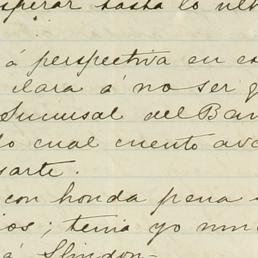 esperar hasta lo ult
á perspectiva en es
clara á no ser q
Sucursal del Ban
lo cual cuento avi
sarte.
con honda pena
ios; tenia yo mu
á